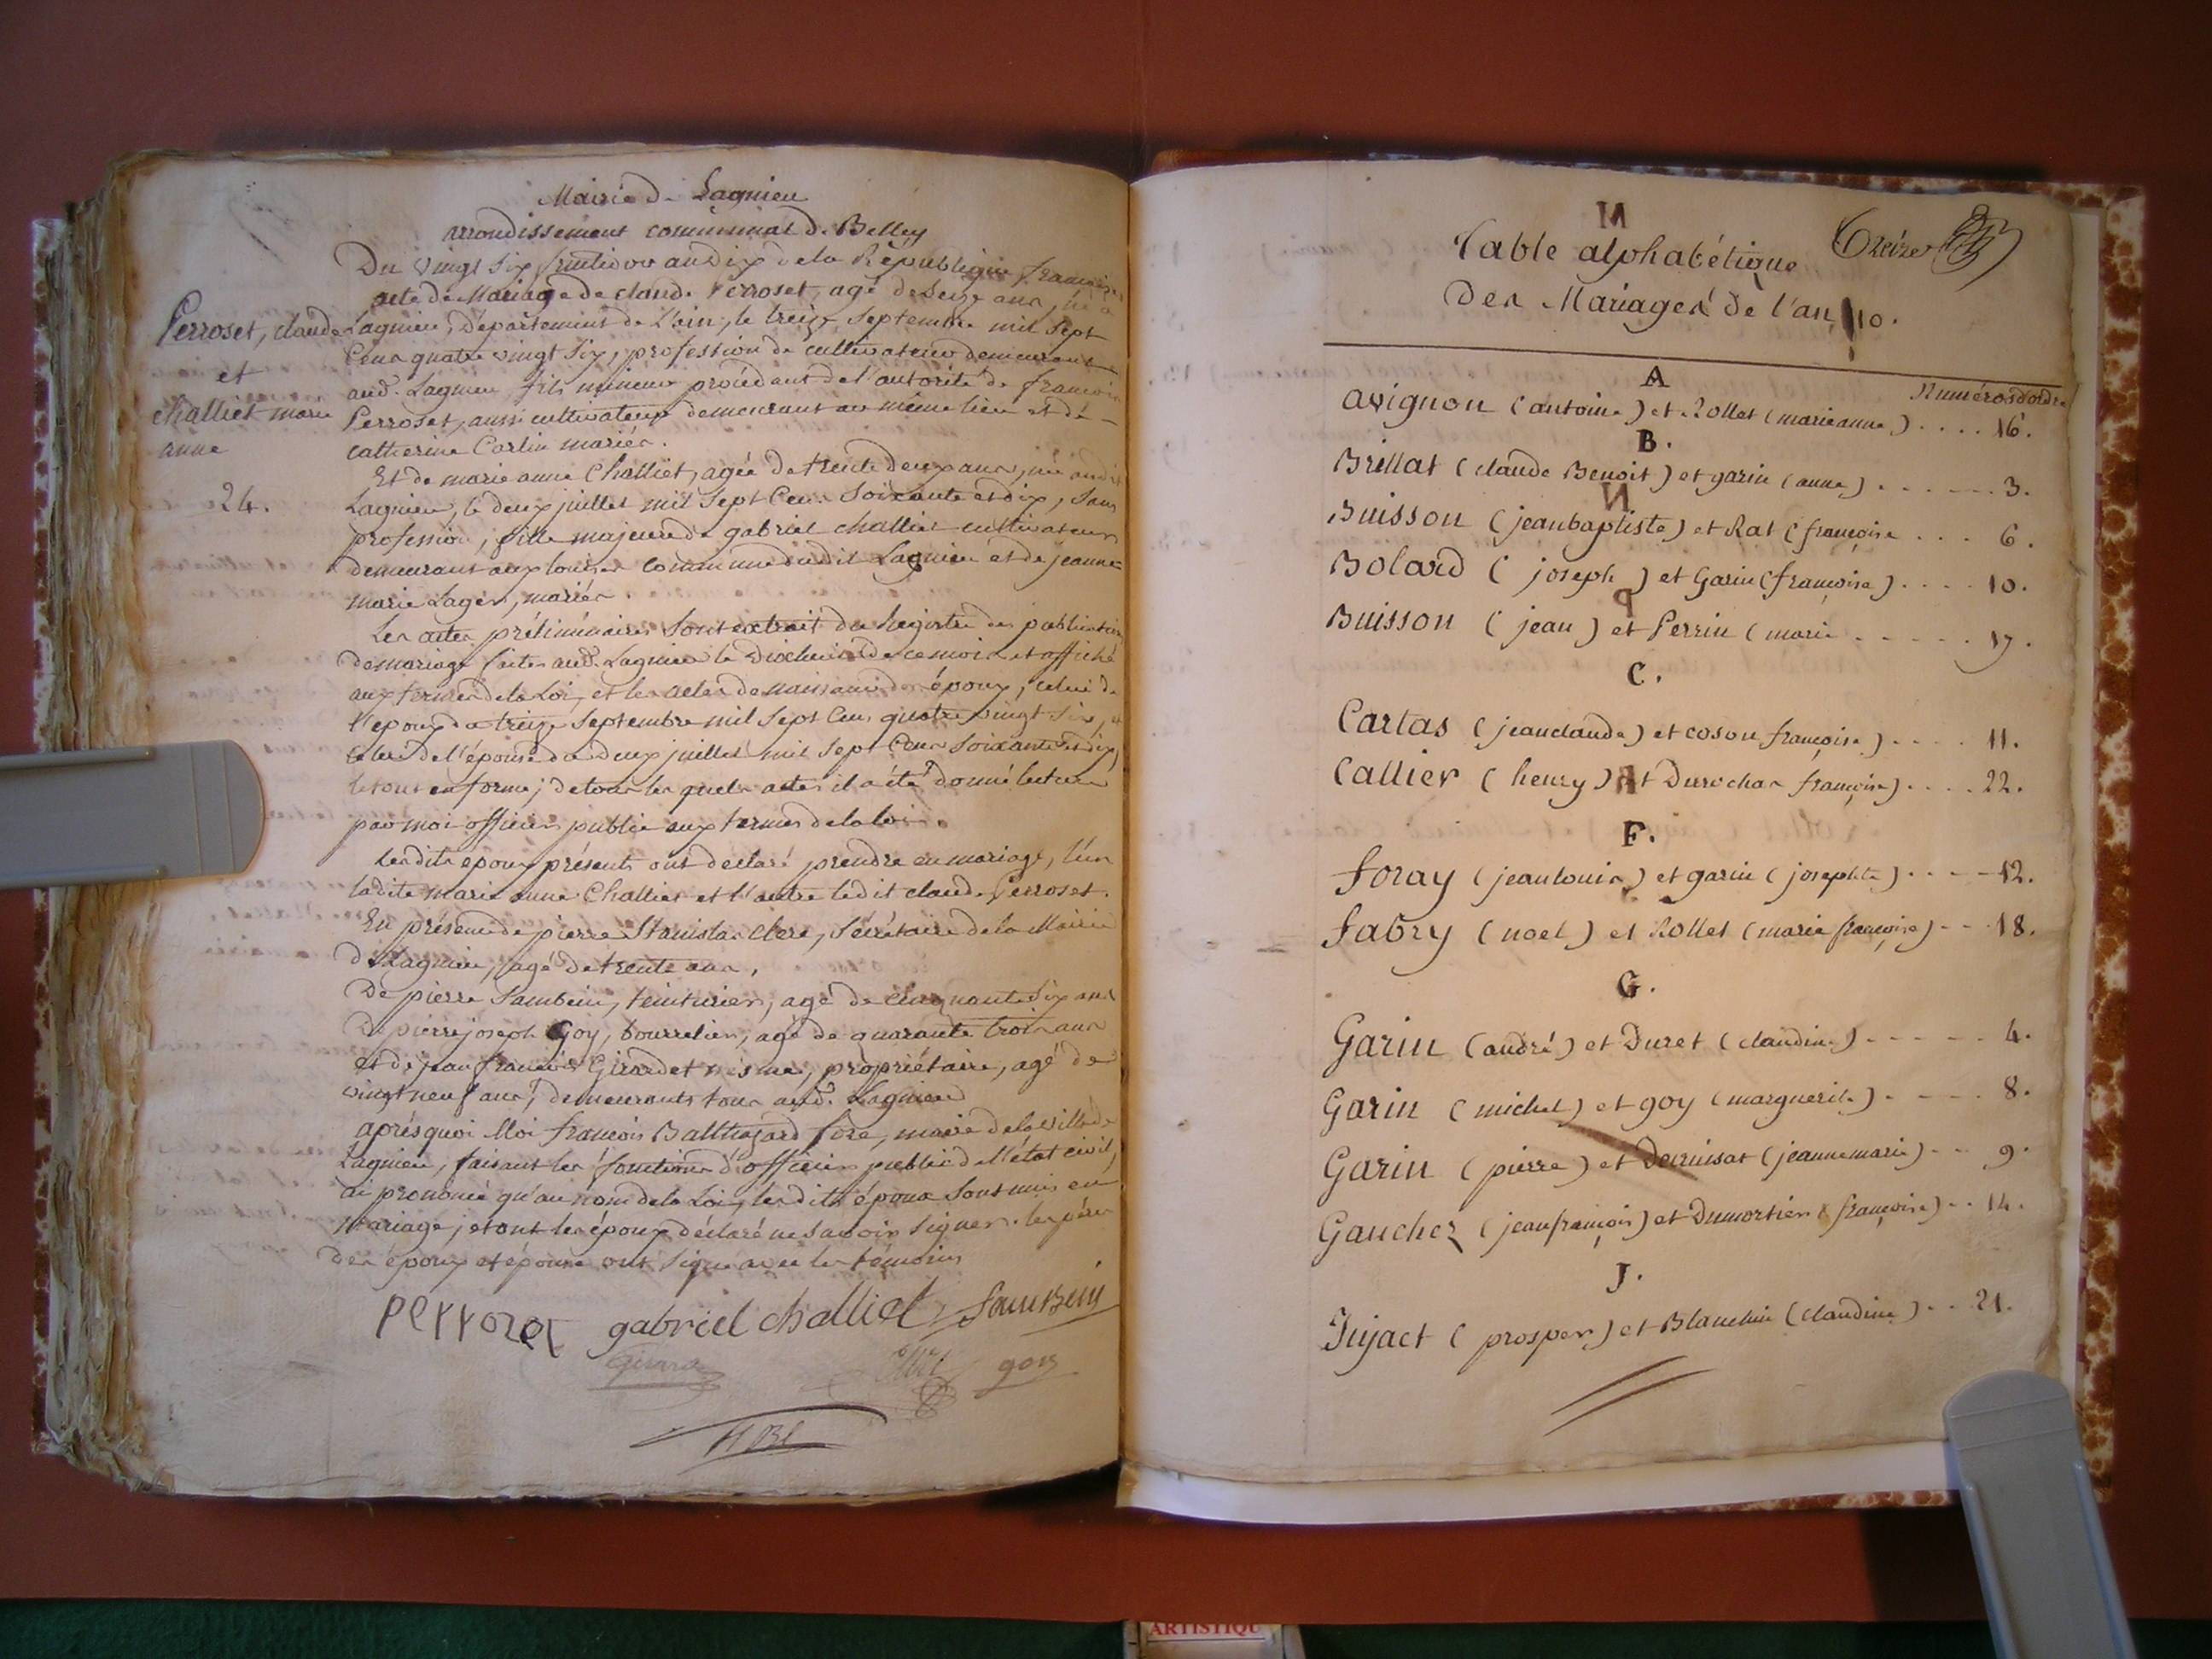 Mairie de Lagnieu
arrondissement communal de Belley
Du vingt six fructidor an dix de la République française
acte de Mariage de claude Perroset, agé de seize ans, né à
Perroset, claude
et
challiet marie
anne
24.
Lagnieu, département de L'ain, le treize Septembre mil sept
Cens quatre vingt six, profession de cultivateur demeurant
aud. Lagnieu fils mineur procédant de l'autorité de françois
Perroset, aussi cultivateur demeurant au même lieu et de
catherine Carlin mariés.
Et de marie anne Challiet, agée de trente deux ans, née audit
Lagnieu, le deux juillet mil sept Cens soixante et dix, sans
profession, fille majeure de gabriel challiet cultivateur
demeurant aux commune dudit Lagnieu et de jeanne
marie Lager, mariés.
Les actes préliminaires sont extrait du Registre des publications
de mariage faites aud. Lagnieu le de ce mois et affiché
aux termes de la Loi, et les actes de naissance des époux, celui de
l'époux du treize Septembre mil sept Cens quatre vingt six, et
celui de l'épouse du deux juillet mil sept Cens soixante et dix,
le tout en forme; de tous lesquels actes il a été donné lecture
par moi officier public aux termes de la loi.
Lesdits epoux présents ont declaré prendre en mariage, l'un
ladite marie anne Challiet et l'autre ledit claude Perroset.
En présence de pierre Stanislas clerc, Sécrétaire de la Mairie
de Lagnieu, agé de trente ans,
De pierre Sambein, teinturier, agé de cinquante six ans
De pierre joseph Goy, bourrelier, agé de quarante trois ans
et de jean françois Girardet, propriétaire, agé de
vingt neuf ans, demeurants tous aud. Lagnieu
après quoi Moi françois Balthazard, maire de la ville de
Lagnieu, faisant les fonctions d'officier public de l'état civil,
ai prononcé qu'au nom de la Loi, lesdits époux sont unis en
mariage; et ont les époux déclaré ne savoir signer. les pères
des époux et épouse ont signé avec les témoins
perroset gabriel challiet Sambein
goy
M
Table alphabétique
Treize
Des Mariages de l'an 10.
Numéros d'ordre
A
avignon (antoine) et Rollet (marie anne) .... 16.
B.
Brillat (claude Benoit) et garin (anne) ..... 3.
Buisson (jean baptiste) et Rat (françoise ... 6.
Bolard (joseph) et Garin (françoise) .... 10.
Buisson (jean) et Perrin (marie ..... 17.
C.
Cartas (jean claude) et coson françoise) .... 11.
Callier (henry) et Durochas françoise) .... 22.
F.
foray (jean louis) et garin (josephte) .... 12.
fabry (noel) et Rollet (marie françoise) ... 18.
G.
Garin (andré) et Duret (claudine) ..... 4.
Garin (michel) et goy (marguerite) .... 8.
Garin (pierre) et (jeanne marie) ... 9.
Gauchez (jean françois) et Dumortier (françoise) .. 14.
J.
Jujact (prosper) et Blanchin (claudine) ... 21.
ARTISTIQU